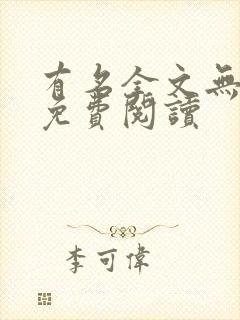 有名全文無
免費閱讀
李可偉